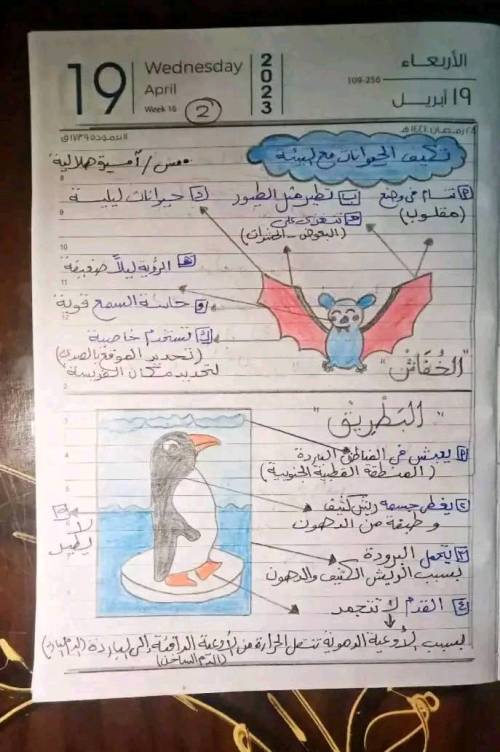 19
Wednesday
April
Week 16
2
2023
الأربعاء
109-256
١٩ أبريل
تكيف الحيوانات مع البيئة
مس / أميرة هلالية
تنام في وضع
(مقلوب)
تطير مثل الطيور
تتغذى على
(البعوض - الحشرات)
حيوانات ليلية
الرؤية ليلاً ضعيفة
حاسة السمع قوية
تستخدم خاصية
(تحديد الموقع بالصدى)
لتحديد مكان الفريسة
"الخُفَّاش"
"البَطْرِيق"
١ يعيش في المناطق الباردة
(المنطقة القطبية الجنوبية)
٢ يغطى جسمه ريش كثيف
وطبقة من الدهون
٣ يتحمل البرودة
بسبب الريش الكثيف والدهون
٤ القدم لا تتجمد
بسبب الأوعية الدموية تنتقل الحرارة من الأوعية الدافئة إلى الباردة
(الدم الساخن)
٥ لا
يطير